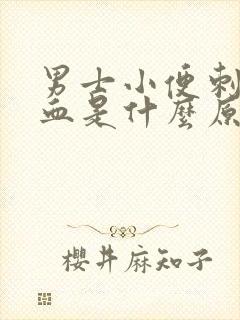 男士小便刺
血是什麼原
櫻井麻知子